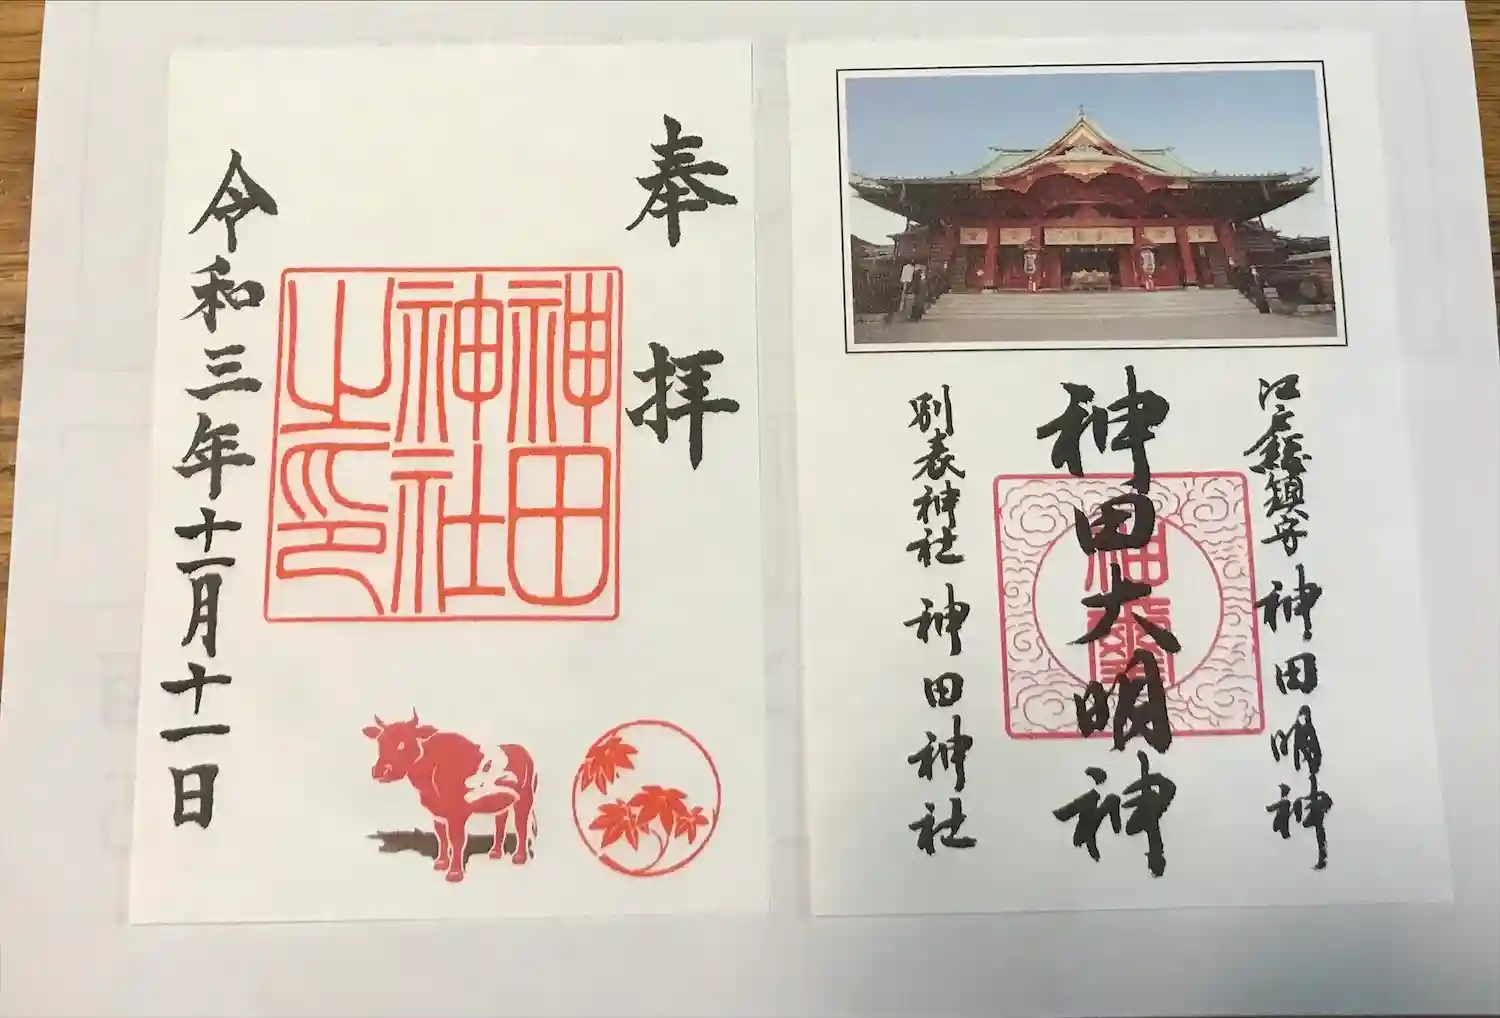 奉拝
神田
神社
之印
令和三年十一月十一日
江戸總鎮守 神田明神
神田大明神
別表神社 神田神社